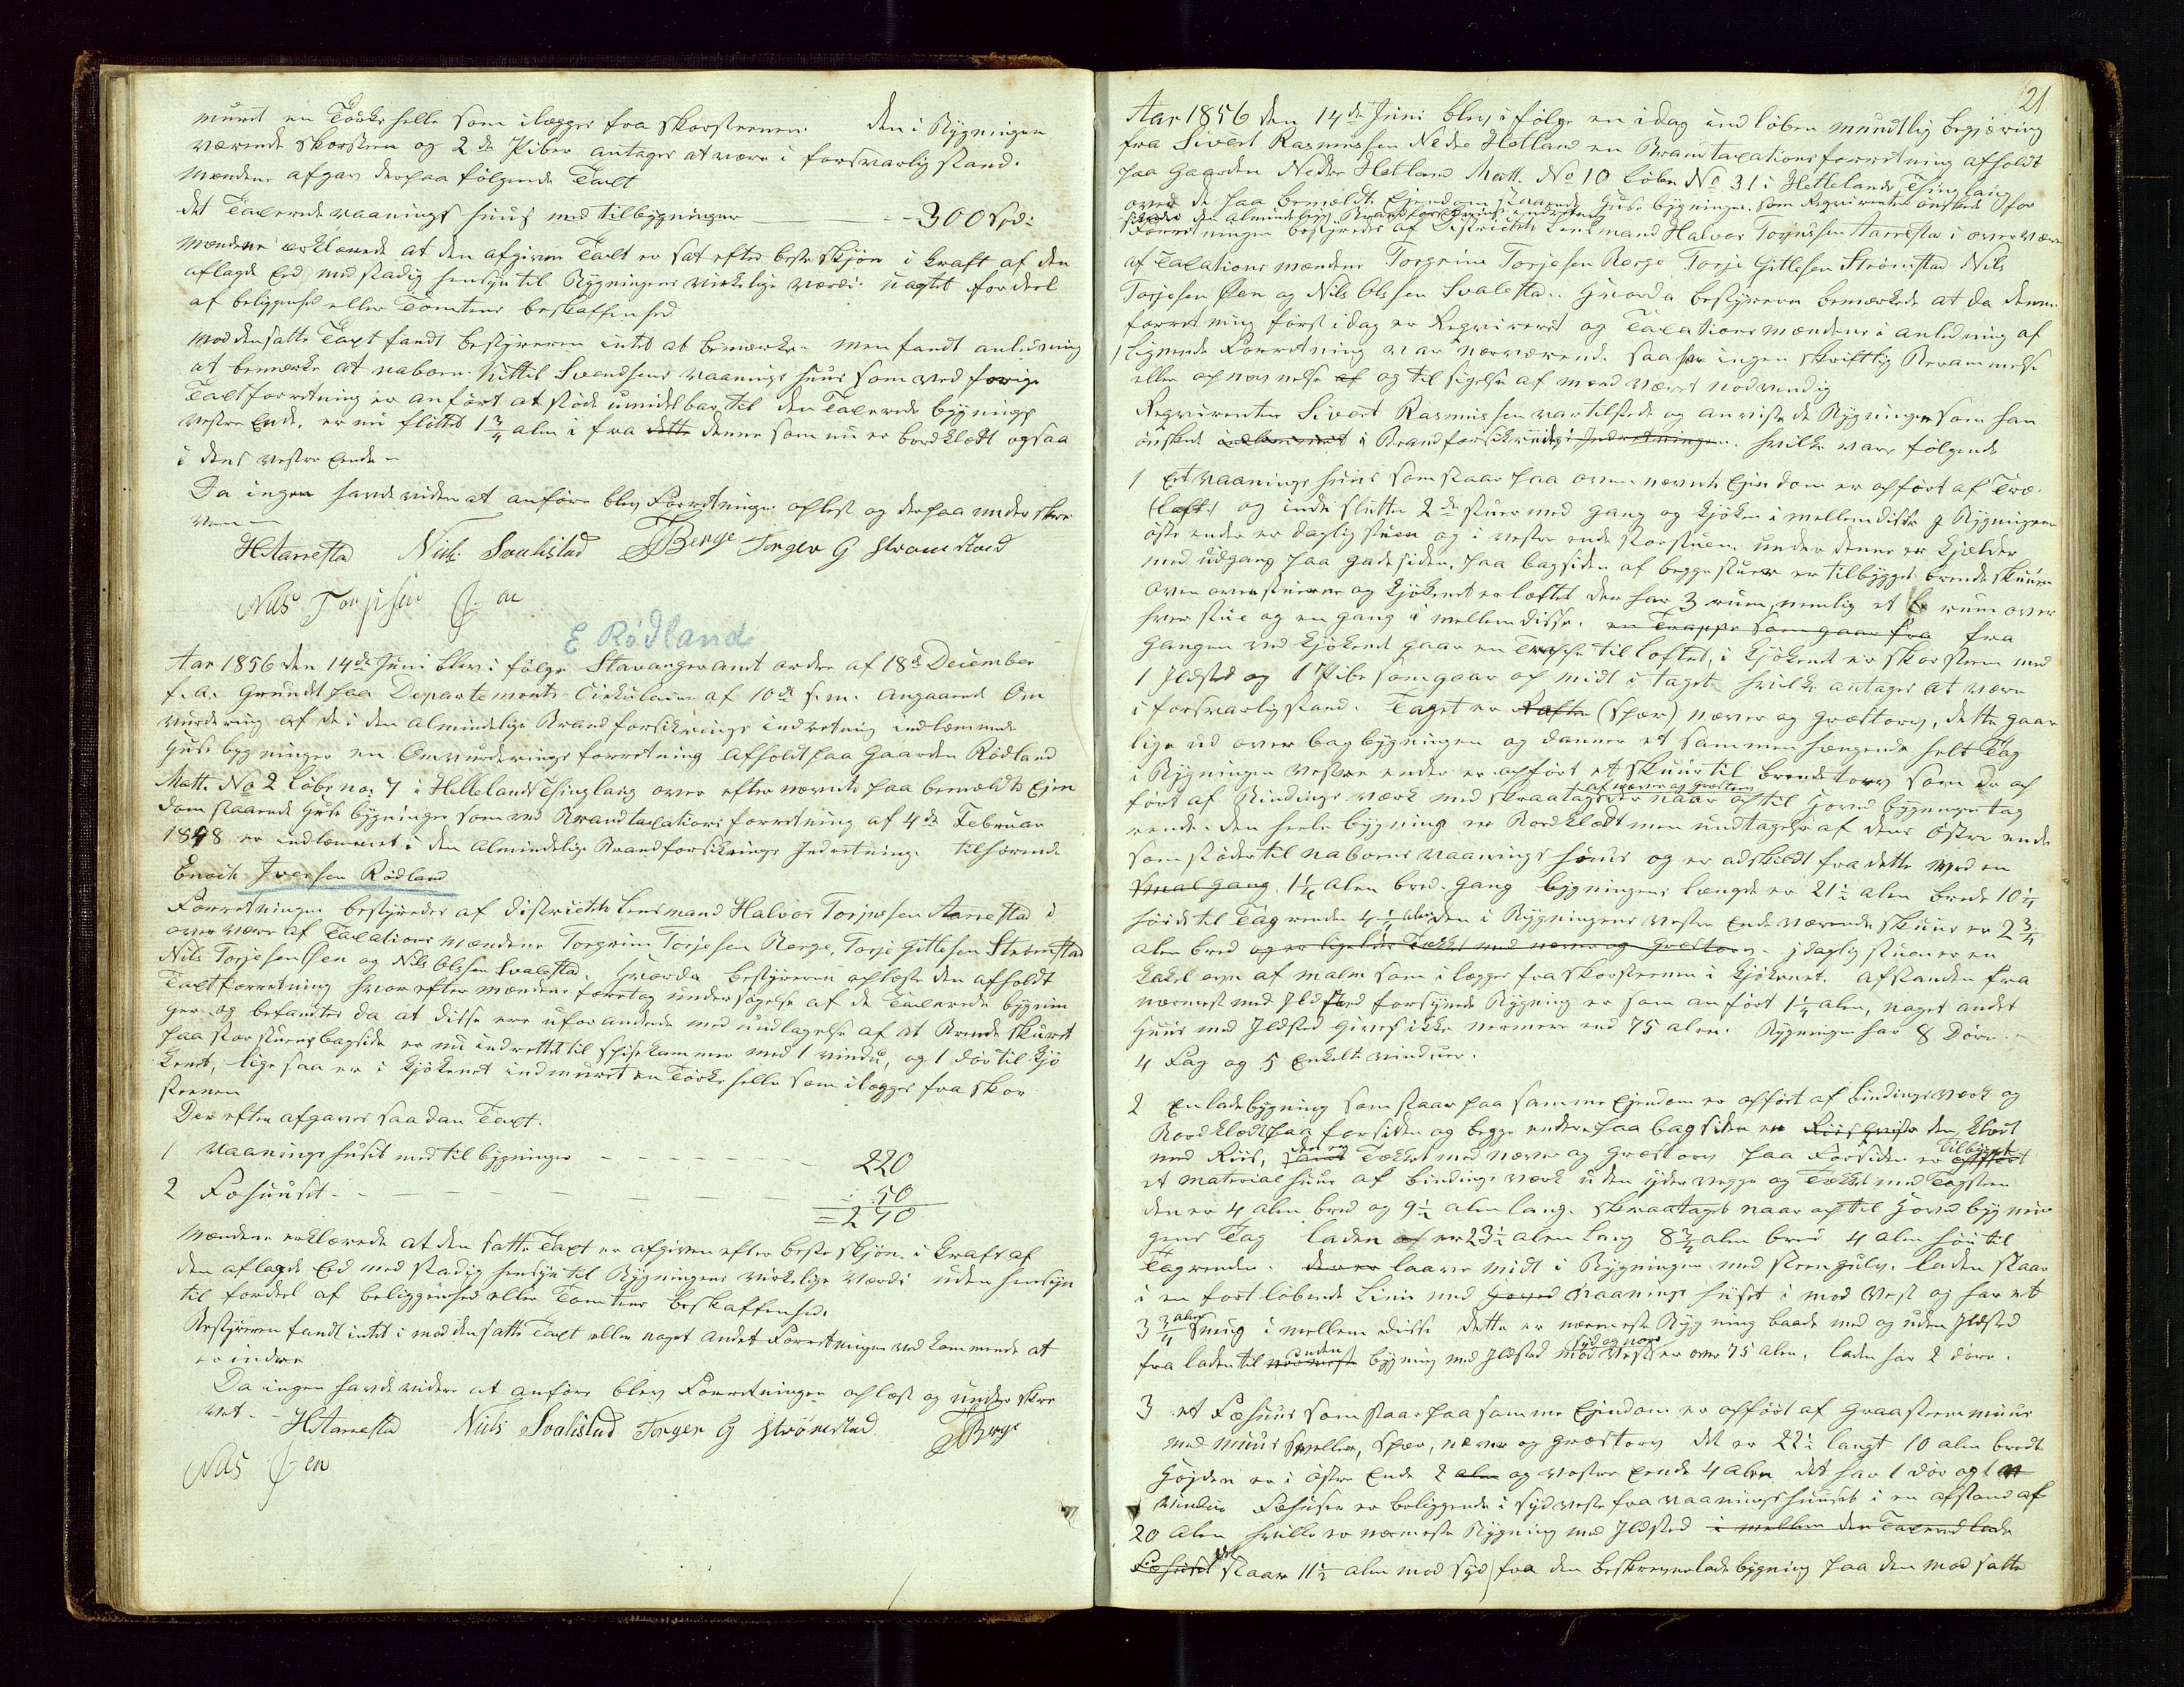 muret en Tørkehelle som ilægges fra skorsteenen. den i Bygningen
værende skorsteen og 2de Piber antages at være i forsvarlig stand.
Mændene afgav derpaa følgende Taxt
det Taxerede vaaningshuus med tilbygninger — 300 Spd:
Mændene erklærede at den afgivne Taxt er sat efter beste skjøn i kraft af den
aflagde Eed, med stadig hensyn til Bygningens virkelige værdi uagtet fordeel
af beliggenhed eller Tomtens beskaffenhed
Mod den satte Taxt fandt bestyreren intet at bemærke. men fandt anledning
at bemærke at naboen Kittel Svendsens vaaningshuus som ved forrige
Taxtforretning er anført at støde umidelbar til den Taxerede bygnings
vestre Ende, er nu flöttet 1 3/4 alen i fra dette denne som nu er bordklædt ogsaa
i dens vestre Ende.
Da ingen havde videre at anføre blev Forretningen oplest og derpaa underskre
ven —
HAarrestad Niels Svalestad TTBerge Torger G Stromstad
Niels Torjesen Øen
E Rødland
Aar 1856 den 14de Juni blev i følge Stavanger amt ordre af 18de December
f. a. grundet paa Departements Cirkulaire af 10de s. m. angaaende Om
vurdering af de i den almindelige Brandforsikrings indretning indlemmede
Huusbygninger en Omvurderings forretning afholdt paa Gaarden Rødland
Matt. No 2 Løbe no. 7 i Hellelands Thinglaug over efternævnte paa bemældte Ejen
dom staaende Huusbygninger som ved Brandtaxations forretning af 4de Februar
1848 er indlemmet i den almindelige Brandforsikrings Indretning. tilhørende
Enoch Iversen Rødland
Forretningen bestyredes af districtets Lensmand Halvor Torjussen Aarrestad i
overvære af Taxationsmændene Torgrim Torjesen Berge, Torje Gitlesen Strømstad
Nils Torjesen Øen og Nils Olssen Svalestad. Hvorda bestyreren oplæste den afholdt
Taxtforretning hvorefter mændene foretog undersøgelse af de Taxerede bygnin
ger og befandtes da at disse ere uforandrede med undtagelse af at Brendeskuret
paa storstuens bagside er nu indrettet til spisekammer med 1 vindu, og 1 dör til kjø
kenet, ligesaa er i kjøkenet indmuret en Tørkehelle som ilægges fra skor
steenen
Derefter afgaves saadan Taxt.
1 Vaaningshuset med tilbygninger — 220
2 Fæhuuset — 50
= 270
Mændene erklærede at den satte Taxt er afgiven efter beste skjøn i Kraft af
den aflagde Eed med stadig hensyn til Bygningens virkelige Værdi uden hensyn
til fordeel af beliggenhed eller Tomtens beskaffenhed.
Bestyreren fandt intet i mod den satte Taxt eller noget andet Forretningen vedkommende at
erindre
Da ingen havde videre at anføre blev Forretningen oplæst og underskre
vet — HAarrestad Niels Svalestad Torger G Strömstad TTBerge
Niels Øen
21
Aar 1856 den 14de Juni blev i følge en i dag indløben mundtlig begjæring
fra Sivert Rasmussen Nedre Hetland en Brandtaxations forretning afholdt
paa Gaarden Nedre Hetland Matt. No 10 Løbe No 31 i Hellelands Thinglaug
over de paa bemældte Ejendom staaende Huusbygninger. som Requirenten önskede for
sikrede i den almindelige Brandforsikrings indretning
Forretningen bestyredes af Districtets Lensmand Halvor Torjussen Aarrestad i overvære
af Taxationsmændene Torgrim Torjesen Berge Torje Gitlesen Strömstad Nils
Torjesen Øen og Nils Olssen Svalestad. Hvorda bestyreren bemærkede at da denne
forretning først i dag er Requireret og Taxationsmændene i anledning af
lignende Forretning var nærværende saa har ingen skriftlig Berammelse
eller opnævnelse af og tilsigelse af mænd været nødvendig
Requirenten Sivert Rasmussen var tilstede og anviste de Bygninger som han
önskede indlemmet i Brandforsikrings Indretningen. hvilke vare følgende
1 Et vaaningshuus som staar paa ovennævnte Ejendom er opført af Træ.
(Laft.) og indeslutter 2de stuer med gang og kjøken i mellem disse I Bygningens
øste ende er dagligstuen og i vestre ende storstuen. under denne er kjælder
med udgang paa gadesiden. paa bagsiden af begge stuer er tilbygget brendeskuur
oven over stuerne og kjøkenet er loftet der har 3 rum, nemlig et rum over
hver stue og en gang i mellem disse. en Trappe som gaar fra fra
gangen ved kjøkenet gaar en Trappe til loftet, i kjøkenet er skorsteen med
1 Ildsted og 1 Pibe som gaar op midt i taget. hvilke antages at være
i forsvarlig stand. Taget er Rafter (Spær) næver og græstorv, dette gaar
lige ud over bagbygningen og danner et sammenhængende helt Tag
i Bygningen vestre ende er opført et skuur til brendetorv som er op
ført af Bindingsværk med skraatag af næver og græstorv der naar op til Hovedbygningens tag
rende. den heele bygning er Bordklædt men undtagelse af dens østre ende
som støder til naboens vaaningshuus og er adskildt fra dette ved en
smal gang. 1 1/4 alen bred. Gang bygningens længde er 21 1/2 alen brede 10 1/4
højde til Tagrende 4 1/4 alen den i Bygningens vestre Ende værende skuur er 2 3/4
alen bred og er ligeledes Tækket med næver og græstorv. i dagligstuen er en
kakelovn af malm som ilægges fra skorsteenen i kjøkenet. afstanden fra
nærmest med Ildsted forsynede Bygning er som anført 1 1/4 alen, noget andet
Huus med Ildsted gives ikke nærmere end 75 alen. Bygningen har 8 Døre.
4 Fag og 5 Enkelte vinduer.
2 En ladebygning som staar paa samme Ejendom er opført af bindingsværk og
Bordklædt paa forsiden og begge ender paa bagsiden er den klædt
med Riis, den er Tækket med næver og græstorv paa Forsiden er Tilbygget opført
et materialhuus af bindingsværk uden ydervægge og Tækket med Tagsteen
den er 4 alen bred og 9 1/2 alen lang. skraataget naar op til Hovedbygnin
gens Tag laden er 23 1/2 alen lang 8 3/4 alen bred 4 alen høi til
Tagrenden. der er laave midt i Bygningen med steengulv. laden staar
i en fortløbende Linie med Hoved Vaaningshuset i mod vest og har et
3 3/4 alen smug i mellem disse dette er nærmeste Bygning baade med og uden Ildsted
fra laden til nærmeste uden bygning med Ildsted mod vest syd og nord er over 75 alen. laden har 2 döre.
3 et Fæhuus som staar paa samme Ejendom er opført af graasteens muur
med muur sviller, spær, næver og græstorv det er 22 1/2 langt 10 alen bredt
Højden er i østre Ende 2 alen og vestre Ende 4 alen det har 1 dör og 1
vindu Fæhuset er beliggende i sydvest fra vaaningshuuset i en afstand af
20 alen hvilke er nærmeste Bygning med Ildsted i mellem den Taxered lade
Fæhuset det staar 11 1/2 alen mod syd fra den beskrevne ladebygning paa den mod satte